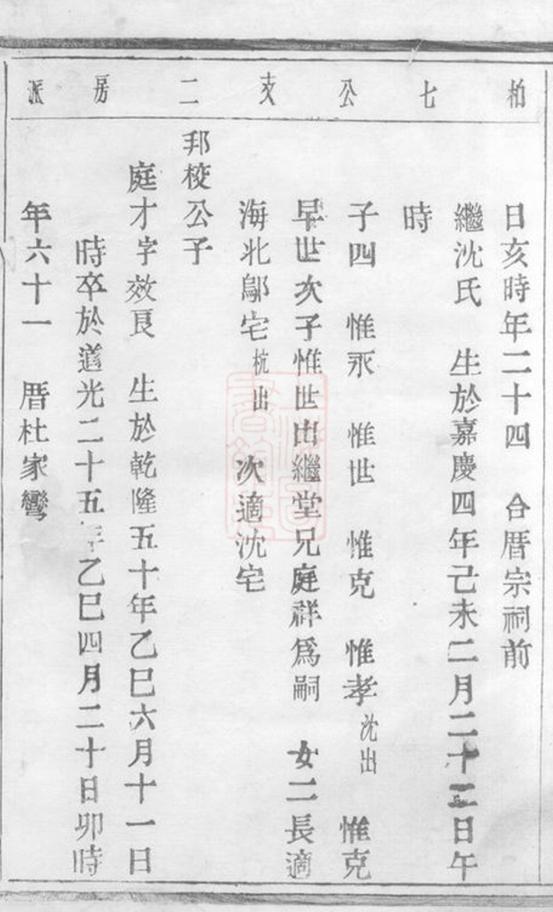 柏七公支二房派
日亥時年二十四　合厝宗祠前
繼沈氏　生於嘉慶四年己未二月二十三日午
時
子四　惟永　惟世　惟克　惟孝沈出　惟克
早世次子惟世出繼堂兄庭祥爲嗣　女二長適
海北鄔宅杭出　次適沈宅
邦校公子
庭才字效良　生於乾隆五十年乙巳六月十一日
時卒於道光二十五年乙巳四月二十日卯時
年六十一　厝杜家彎